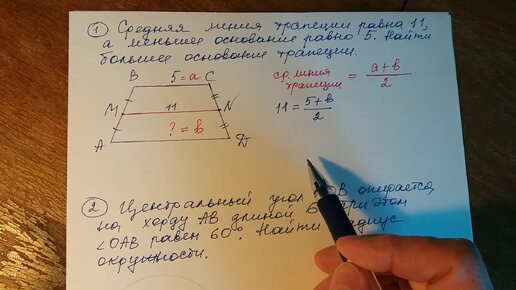 ① Средняя линия трапеции равна 11,
а меньшее основание равно 5. Найти
большее основание трапеции.
B 5 = a C
M 11 N
? = b
A D
ср. линия трапеции = a + b / 2
11 = 5 + b / 2
② Центральный угол AOB опирается
на хорду AB длиной 6. При этом
∠OAB равен 60°. Найти радиус
окружности.